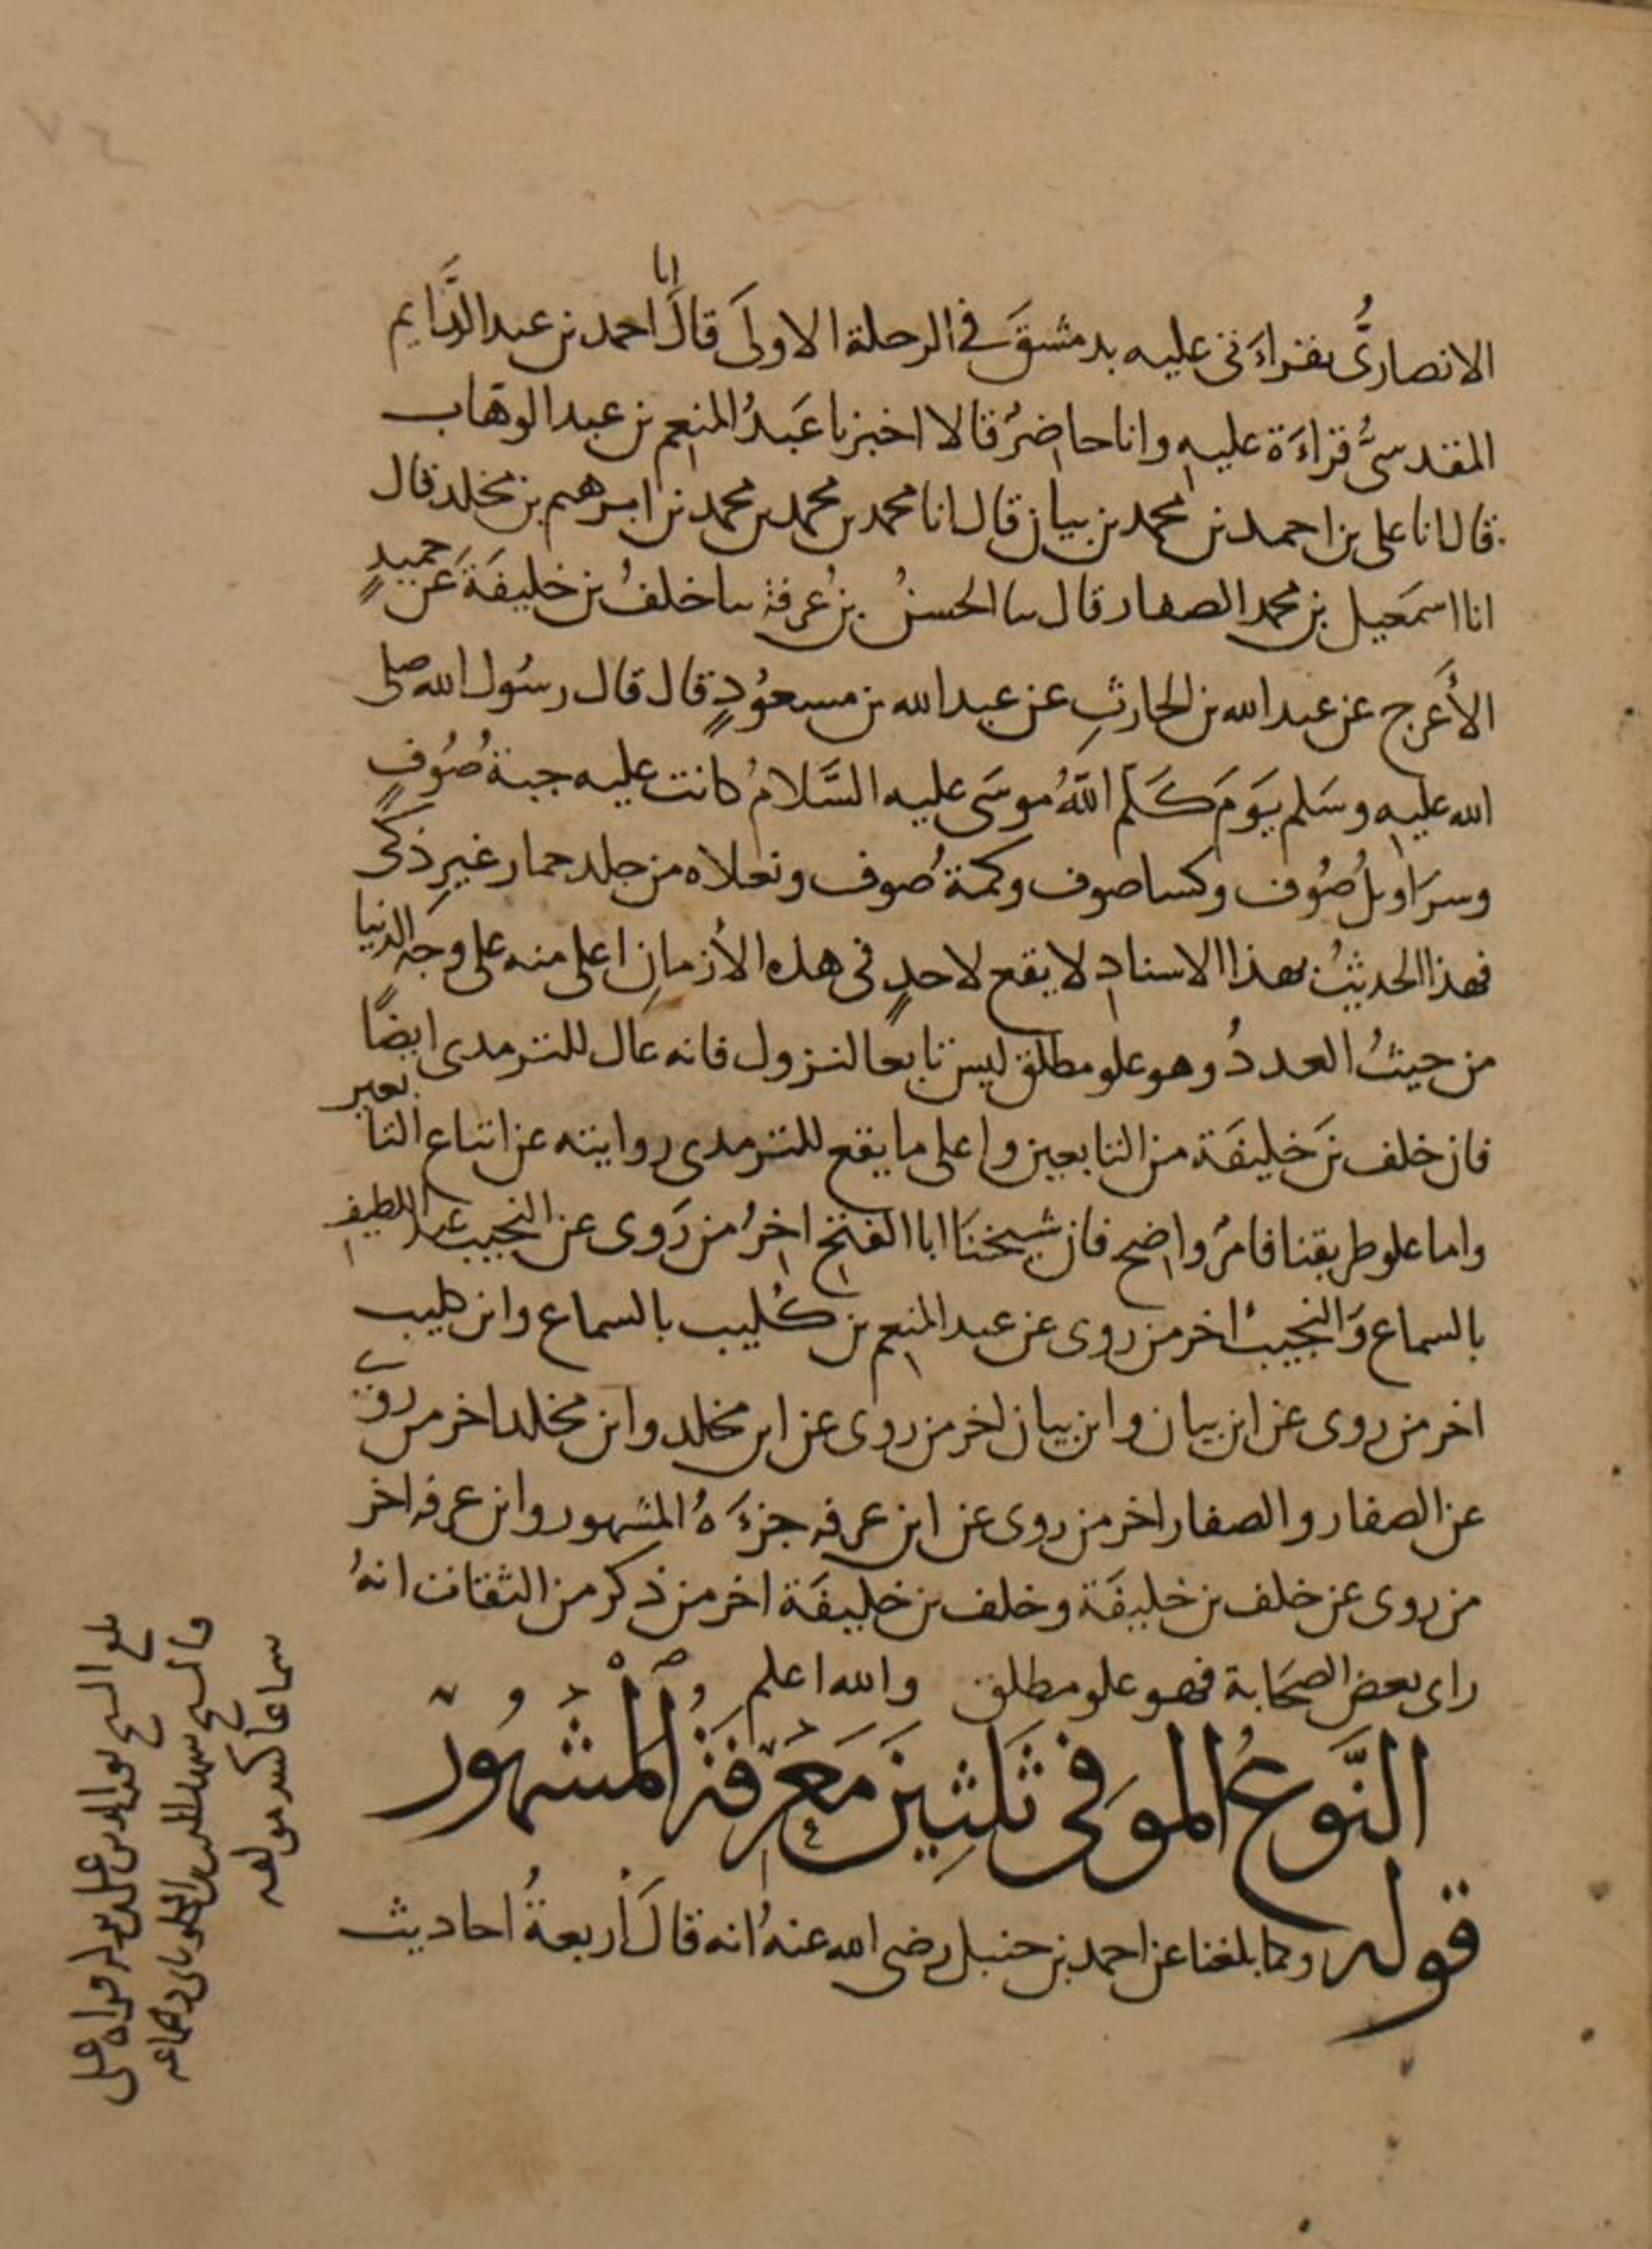 ٧٤
الانصاريُّ بقراءَتي عليه بدمشقَ في الرحلة الاولَى قالَ انا احمد بن عبد الدَّايم
المقدسيُّ قراءَة عليه وانا حاضرٌ قالا اخبرنا عَبدُ المنعم بن عبد الوهاب
قال انا علي بن احمد بن محمد بن بيان قال انا محمد بن محمد بن محمد بن ابرهيم بن مخلد قال
انا اسمَعيل بن محمد الصفار قال سا الحسنُ بنُ عرفة سا خلفُ بن خليفَةَ عَن حميدٍ
الأَعرج عن عبد الله بن الحارثِ عن عبد الله بن مسعوُدٍ قال قال رسُول الله صلى
الله عليه وسَلم يَومَ كَلَّم اللهُ موسَى عليه السَّلامُ كانت عليه جبةُ صُوفٍ
وسرَاويلُ صُوف وكسا صوف وكمةُ صوف ونعلاه من جلد حمار غيرِ ذكي
فهذا الحديثُ بهذا الاسنادِ لا يقع لاحدٍ في هذه الأزمانِ اعلى منه على وجَه الدنيا
من حيثُ العددُ وهو علو مطلق ليس تابعا لنزول فانه عال للترمدى ايضًا
فان خلف بنَ خليفَة من التابعين واعلى ما يقع للترمدى روايته عن اتباع التابعين
واما علو طريقنا فامرٌ واضح فان شيخنَا ابا الفتح اخرُ من رَوى عن النجيب عبد اللطيف
بالسماع وَالنجيبُ اخر من روى عن عبد المنعم بن كُليب بالسماع وابن كليب
اخر من روى عن ابن بيان وابن بيان اخر من روى عن ابن مخلد وابن مخلد اخر من روى
عن الصفار والصفار اخر من روى عن ابن عرفه جزءَهُ المشهور وابن عرفه اخر
من روى عن خلف بن خليفَة وخلف بن خليفَة اخر من ذكر من الثقات انهُ
راى بعض الصحَابة فهو علو مطلق والله اعلم
النَّوعُ الموَفي ثَلثِينَ مَعْرفَةُ المشْهُورْ
قوله وكما بلغنا عن احمد بن حنبل رضي الله عنهُ انه قالَ أربعةُ احاديث
بلغ الشيخ نور الدين على قراه على
سماعا كتبه مولفه